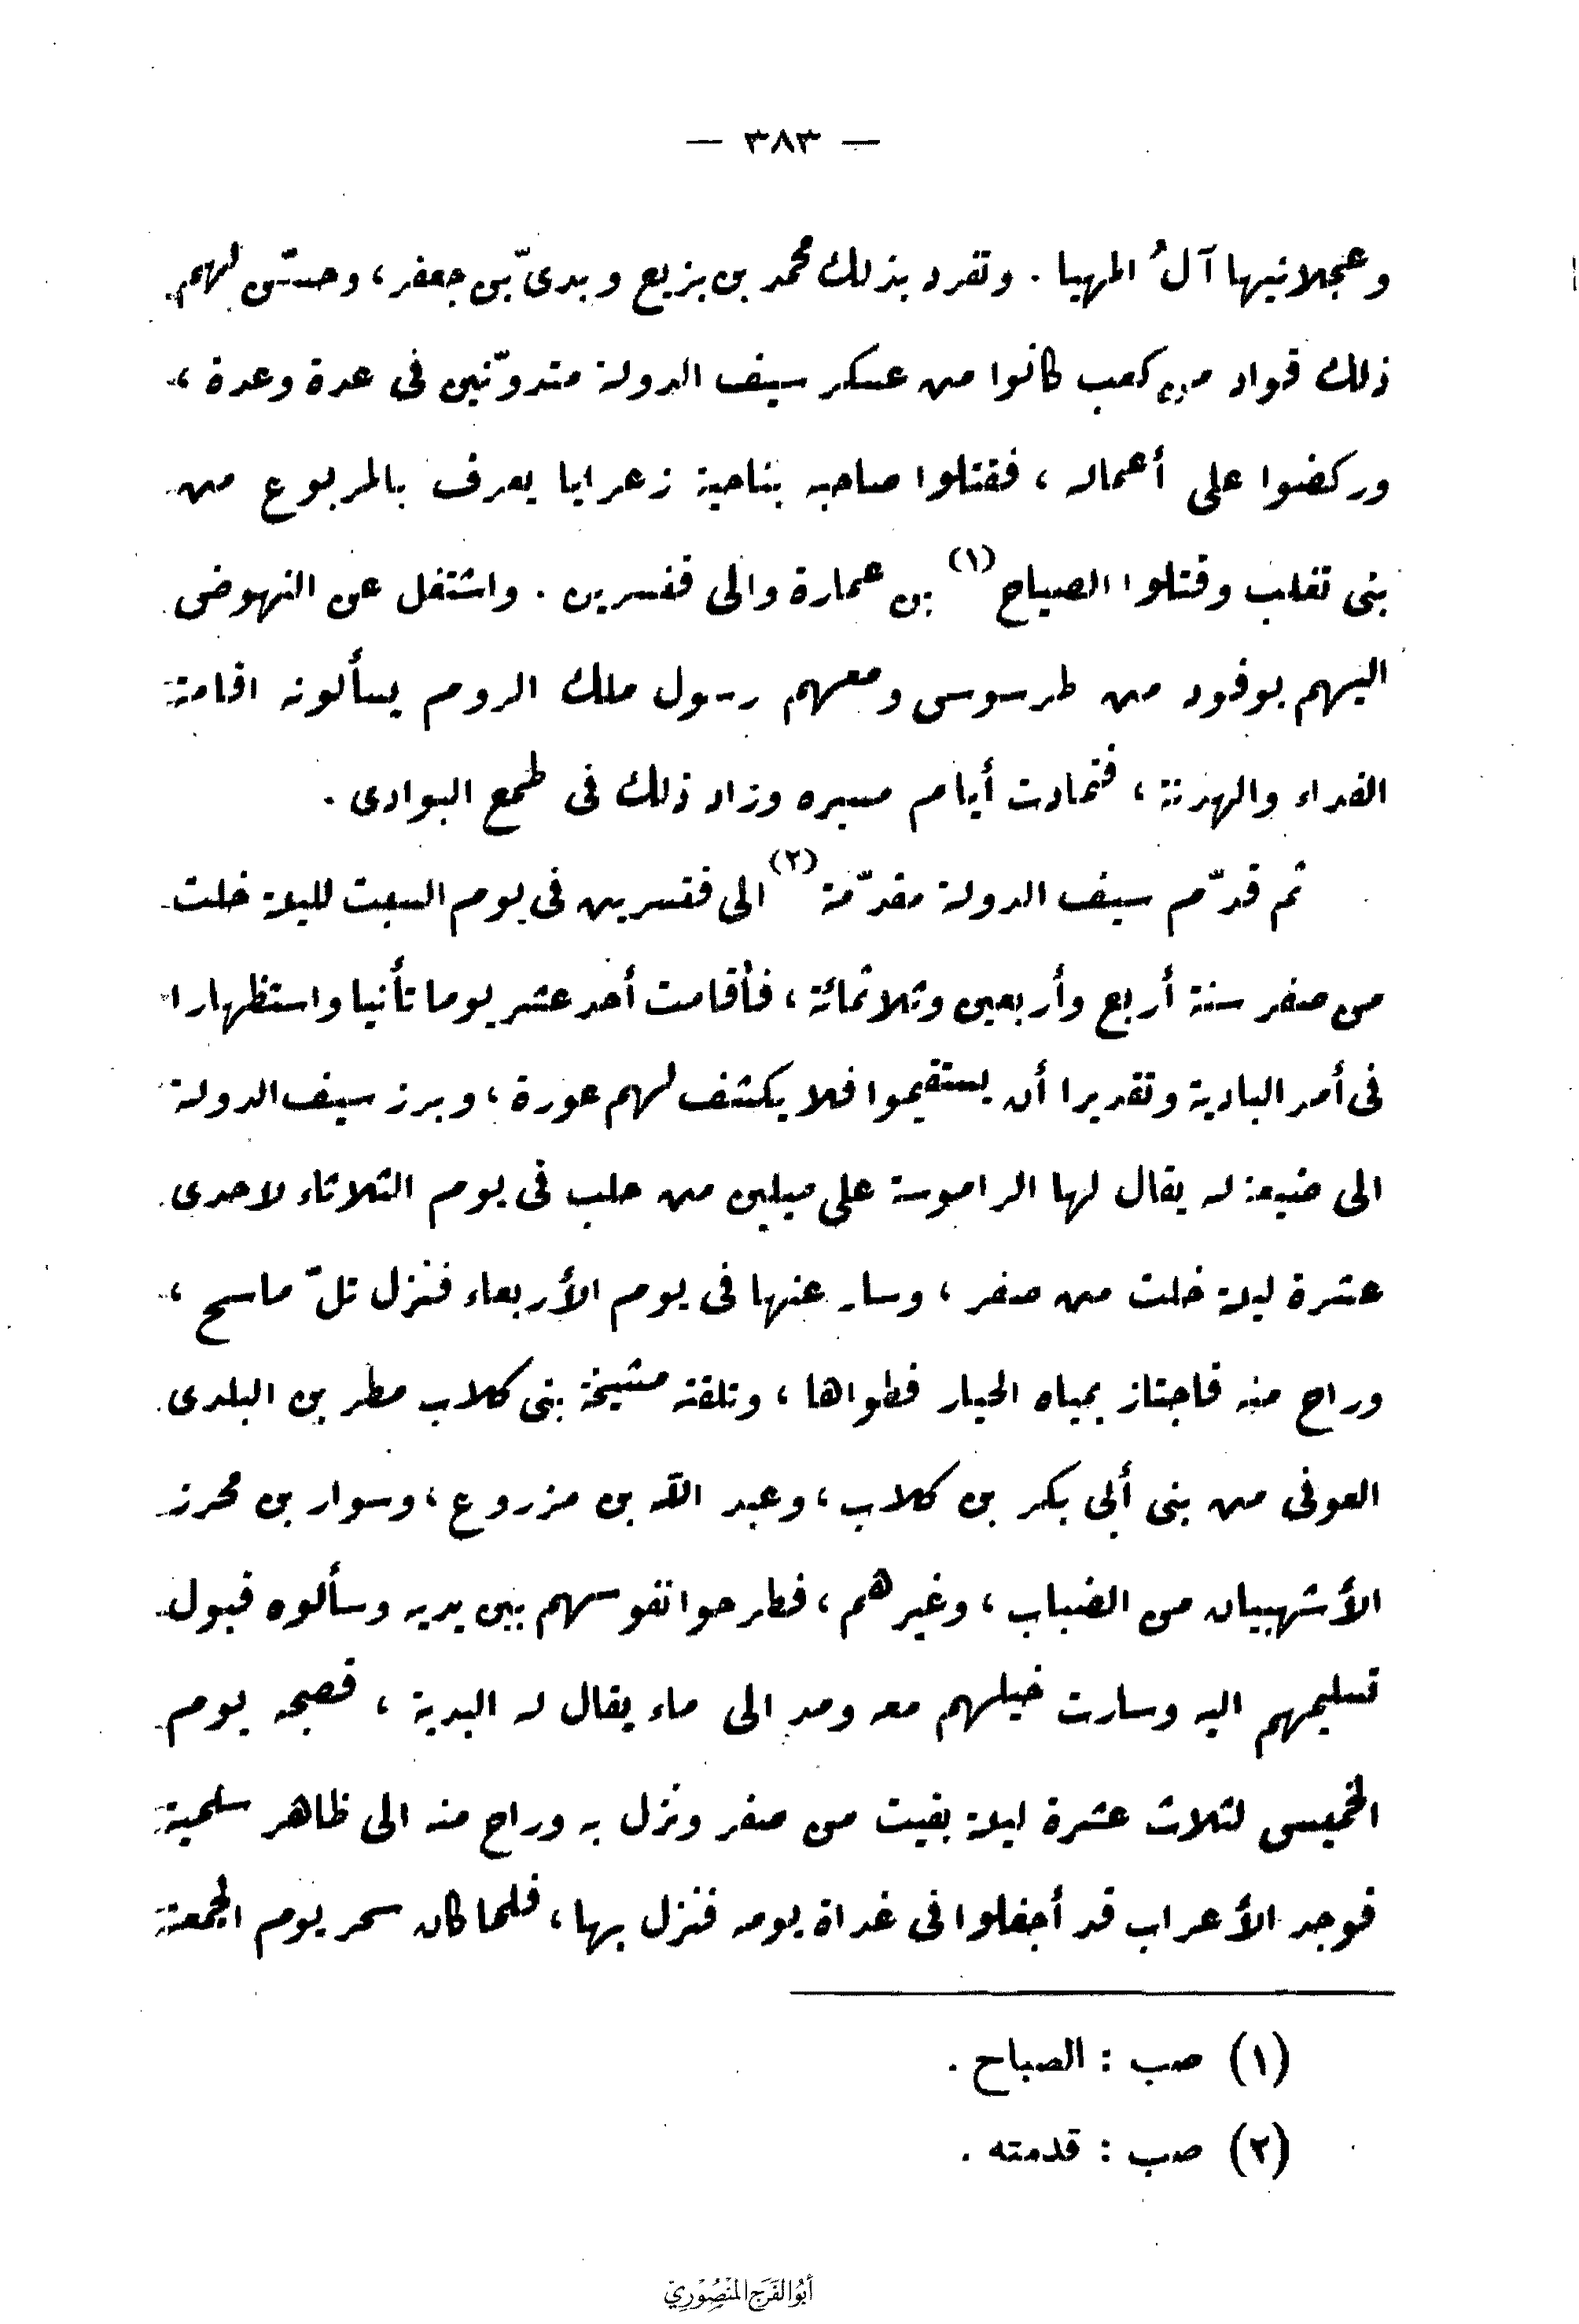 — ٣٨٣ —
وعجلانيها آلُ المهيا . وتفرد بذلك محمد بن بزيع وبدىّ بن جعفر ، وحسّن لهم
ذلك قواد من كعب كانوا من عسكر سيف الدولة متدوّنين فى عدة وعدة ،
وركضوا على أعماله ، فقتلوا صاحبه بناحية زعرايا يعرف بالمربوع من
بنى تغلب وقتلوا الصياح (١) بن عمارة والى قنسرين . واشتغل عن النهوض
اليهم بوفود من طرسوس ومعهم رسول ملك الروم يسألونه اقامة
الفداء والهدنة ، فتمادت أيام مسيره وزاد ذلك فى طمع البوادى .
ثم قدّم سيف الدولة مقدّمة (٢) الى قنسرين فى يوم السبت لليلة خلت
من صفر سنة أربع وأربعين وثلاثمائة ، فأقامت أحد عشر يوما تأنيا واستظهارا
فى أمر البادية وتقديرا أن يستقيموا فلا يكشف لهم عورة ، وبرز سيف الدولة
الى ضيعة له يقال لها الراموسة على ميلين من حلب فى يوم الثلاثاء لاحدى
عشرة ليلة خلت من صفر ، وسار عنها فى يوم الأربعاء فنزل تلّ ماسح ،
وراح منه فاجتاز بمياه الحيار فطواها ، وتلقته مشيخة بنى كلاب مطر بن البلدى
العوفى من بنى أبى بكر بن كلاب ، وعبد الله بن مزروع ، وسوار بن محرز
الأشهبيان من الضباب ، وغيرهم ، فطرحوا نفوسهم بين يديه وسألوه قبول
تسليمهم اليه وسارت خيلهم معه ومر الى ماء يقال له البدية ، فصبحه يوم
الخميس لثلاث عشرة ليلة بقيت من صفر ونزل به وراح منه الى ظاهر سلمية
فوجد الأعراب قد أجفلوا فى غداة يومه فنزل بها ، فلما كان سحر يوم الجمعة
(١) صب : الصباح .
(٢) صب : قدمته .
أبُو الفَرَج المَنْصُوْرِيّ